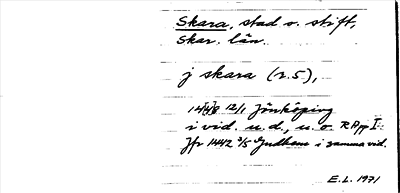 Skara, stad o. stift,
Skar. län.
j skara (r.5),
1448 12/1 Jönköping
i vid. u.d., u.o. RApp I.
Jfr 1442 3/5 i samma vid.
E.L. 1971